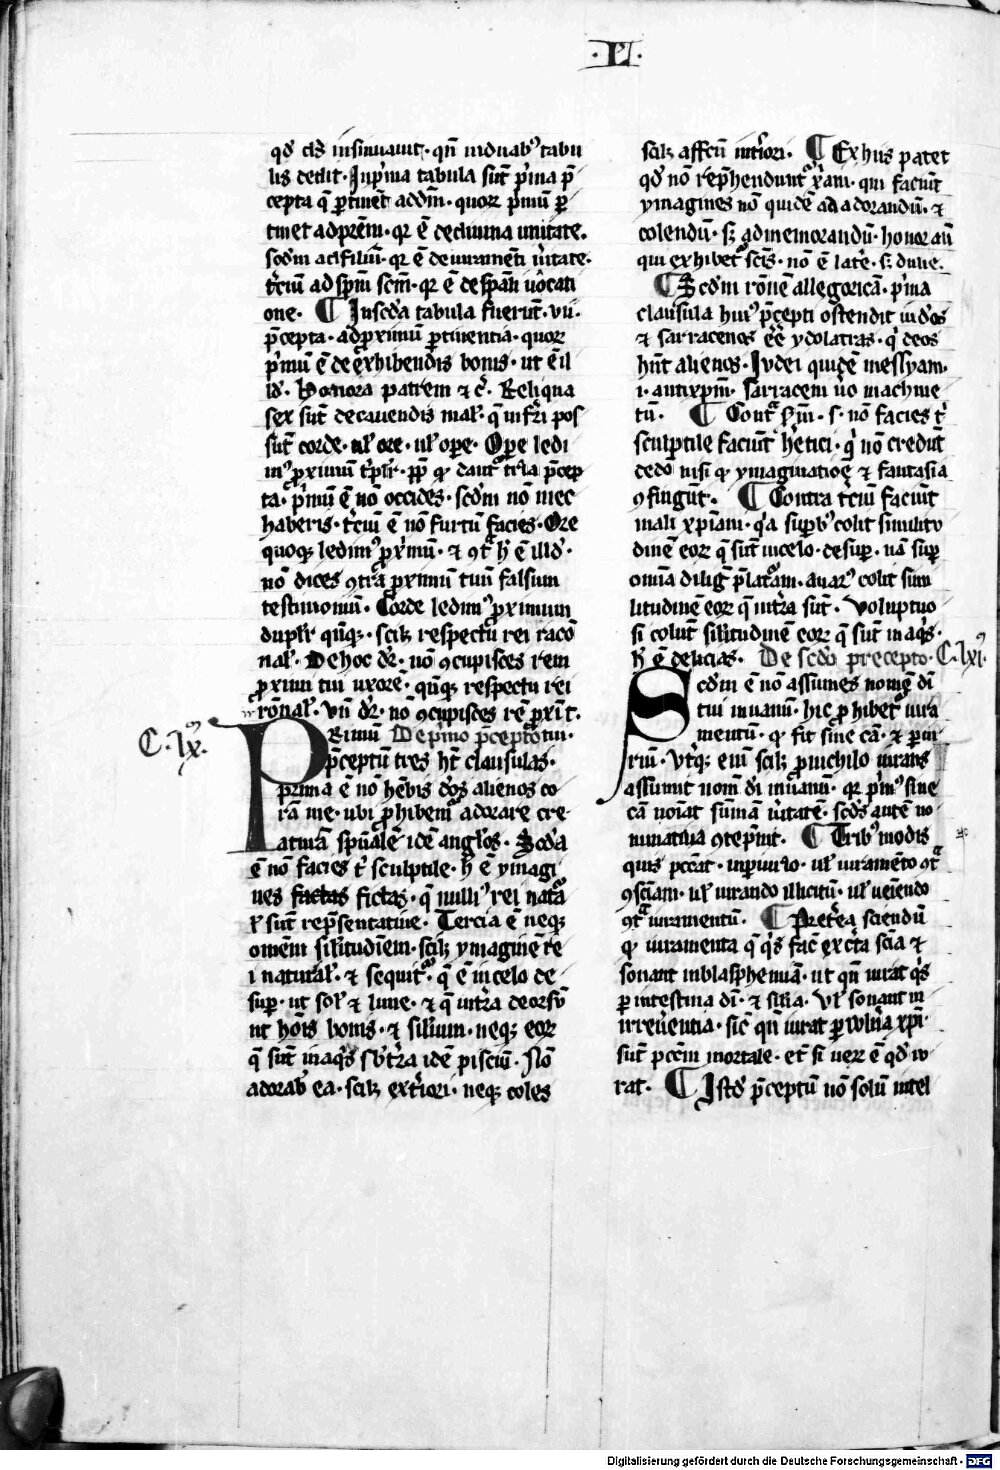 ·VI·
qd' eis insinuauit· qn̄ in duab' tabu
lis dedit· In p'ma tabula sūt p'ma p̄
cepta q̄ p̱tinēt ad dm̄· quoꝝ p'mū p̱
tinet ad prēm· qꝛ ē de diuina unitate·
scd'm ad filiū· qꝛ ē de iuramēti u'itate·
t'ciū ad sp̄m scm̄· qꝛ ē de sp̄ali uocati
one· ¶ In scd'a tabula fuerūt· vii·
p̄cepta· ad proximū p̱tinentia· quoꝝ
p'mū ē de exhibendis bonis· ut ē il
ld'· Honora patrem ⁊ c̄· Reliqua
sex sūt de cauendis mal'· q̄ inf'ri pos
sūt corde· ul' ore· ul' oꝑe· Oꝑe ledi
m' proximū t'pl'r·
ta· p'mū ē nō occides· scd'm nō mec
haberis· t'ciū ē nō furtū facies· Ore
quoqꝫ ledim' proximū· ⁊ ꝯt^a h' ē illd'·
nō dices ꝯtra proximū tuū falsum
testimoniū· Corde ledim' proximum
dupl'r qn̄qꝫ· scilꝫ respectu rei racō
nal'· De hoc dr̄· nō ꝯcupisces rem
proximi tui uxorē· qn̄qꝫ respectu rei
irrōnal'· Vn̄ dr̄· nō ꝯcupisces rē prox̄i t·
C· lx·
PRimū De p'mo p̄cepto tui·
p̄ceptū tres hēt clausulas·
prima ē nō hēbis deos alienos co
rā me· ubi prohibem' adorare cre
aturā spūalē idē angl'os· Scd'a
ē nō facies t' sculptile· h' ē ymagi
nes factas fictas· q̄ nulli' rei nat^a
l' sūt rep̄sentatiue· Tercia ē neqꝫ
omēm silitudīem· scilꝫ ymaginē re
i natural'· ⁊ sequit'· q̄ ē in celo de
sup̱· ut sol' ⁊ lune· ⁊ q̄ in t'ra deorsū
ut hoīs bouis· ⁊ siliūm· neqꝫ eoꝝ
q̄ sūt in aq's sub t'ra idē pisciū· Nō
adorab' ea· scilꝫ ext'iori· neqꝫ coles
scilꝫ affcū int'iori· ¶ Ex hiis patet
qd' nō rep̄hendunt' xp̄iani· qui faciūt
ymagines nō quidē ad adorandū· ⁊
colendū· sꝫ ad memorandū· honor aūt
qui exhibet' scīs· nō ē latr'e· sꝫ dulie·
¶ Scd'm rōnem allegoricā· p'ma
clausula hui' p̄cepti ostendit iud'os
⁊ sarracenos eē ydolatras· q' deos
hn̄t alienos· Iudei quidē messyam·
i· antixp̄m· Sarraceni u'o machme
tū· ¶ Cont^a s'm· s· nō facies t'
sculptile faciūt h'etici· q' nō credūt
cedo nisi qꝫ ymaginatioe ⁊ fantasia
ꝯfingūt· ¶ Contra t'ciū faciūt
mali xp̄iani· q'a sup̱b' colit similitu
dinē eoꝝ q̄ sūt in celo· desup̱· nā sup̱
omīa diligt p̄latam· auar' colit simi
litudinē eoꝝ q̄ in t'ra sūt· Voluptuo
si colunt silitudinē eoꝝ q̄ sūt in aq's·
h' ē delicias· De scd'o precepto· C· lxi·
Scd'm ē nō assumes nomē di
tui in uanū· hic p̱hibet' iura
mentū· qꝫ fit sine cā· ⁊ p̱iu
riū· Vt'qꝫ eiū scilꝫ pro nichilo iurans
assumit nom̄ di in uanū· qꝛ p'm' sine
cā noīat sūmā u'itatē· scd's autē no
minatiua ꝯtēpnit· ¶ Trib' modis
quis pccāt· in p̱iurio· ul' iuramēto ꝯt^a
ꝯsciam· ul' iurando illicitū· ul' ueiēndo
ꝯt^a iuramentū· ¶ Preterea sciendū
qꝫ iuramenta q̄ q's fac' ex c'ta sciā ⁊
sonant in blasphemiā· ut qn̄ iurat q's
p̱ intestina di· ⁊ silia· Vl' sonant in
irreuerentia· sic' qn̄ iurat p̱ uulnera xp̄i·
sūt pccm̄ mortale· et si uerꝫ ē qd' iu
rat· ¶ Istd' p̄ceptū nō solū intel
Digitalisierung gefördert durch die Deutsche Forschungsgemeinschaft - DFG